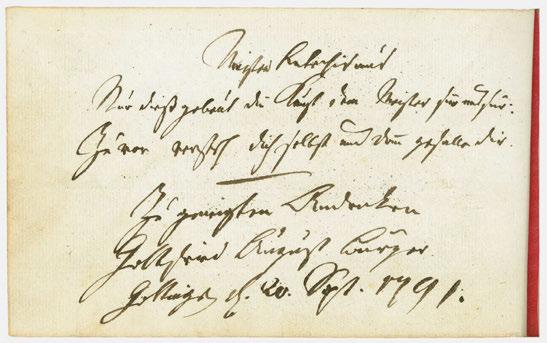 Meister Katechismus
Nur dieß gebeut die Kunst dem Meister für und für:
Zuvor versteh dich selbst und dann gefalle dir.
Zu geneigtem Andenken
Gottfried August Bürger
Göttingen d. 20. Sept. 1791.